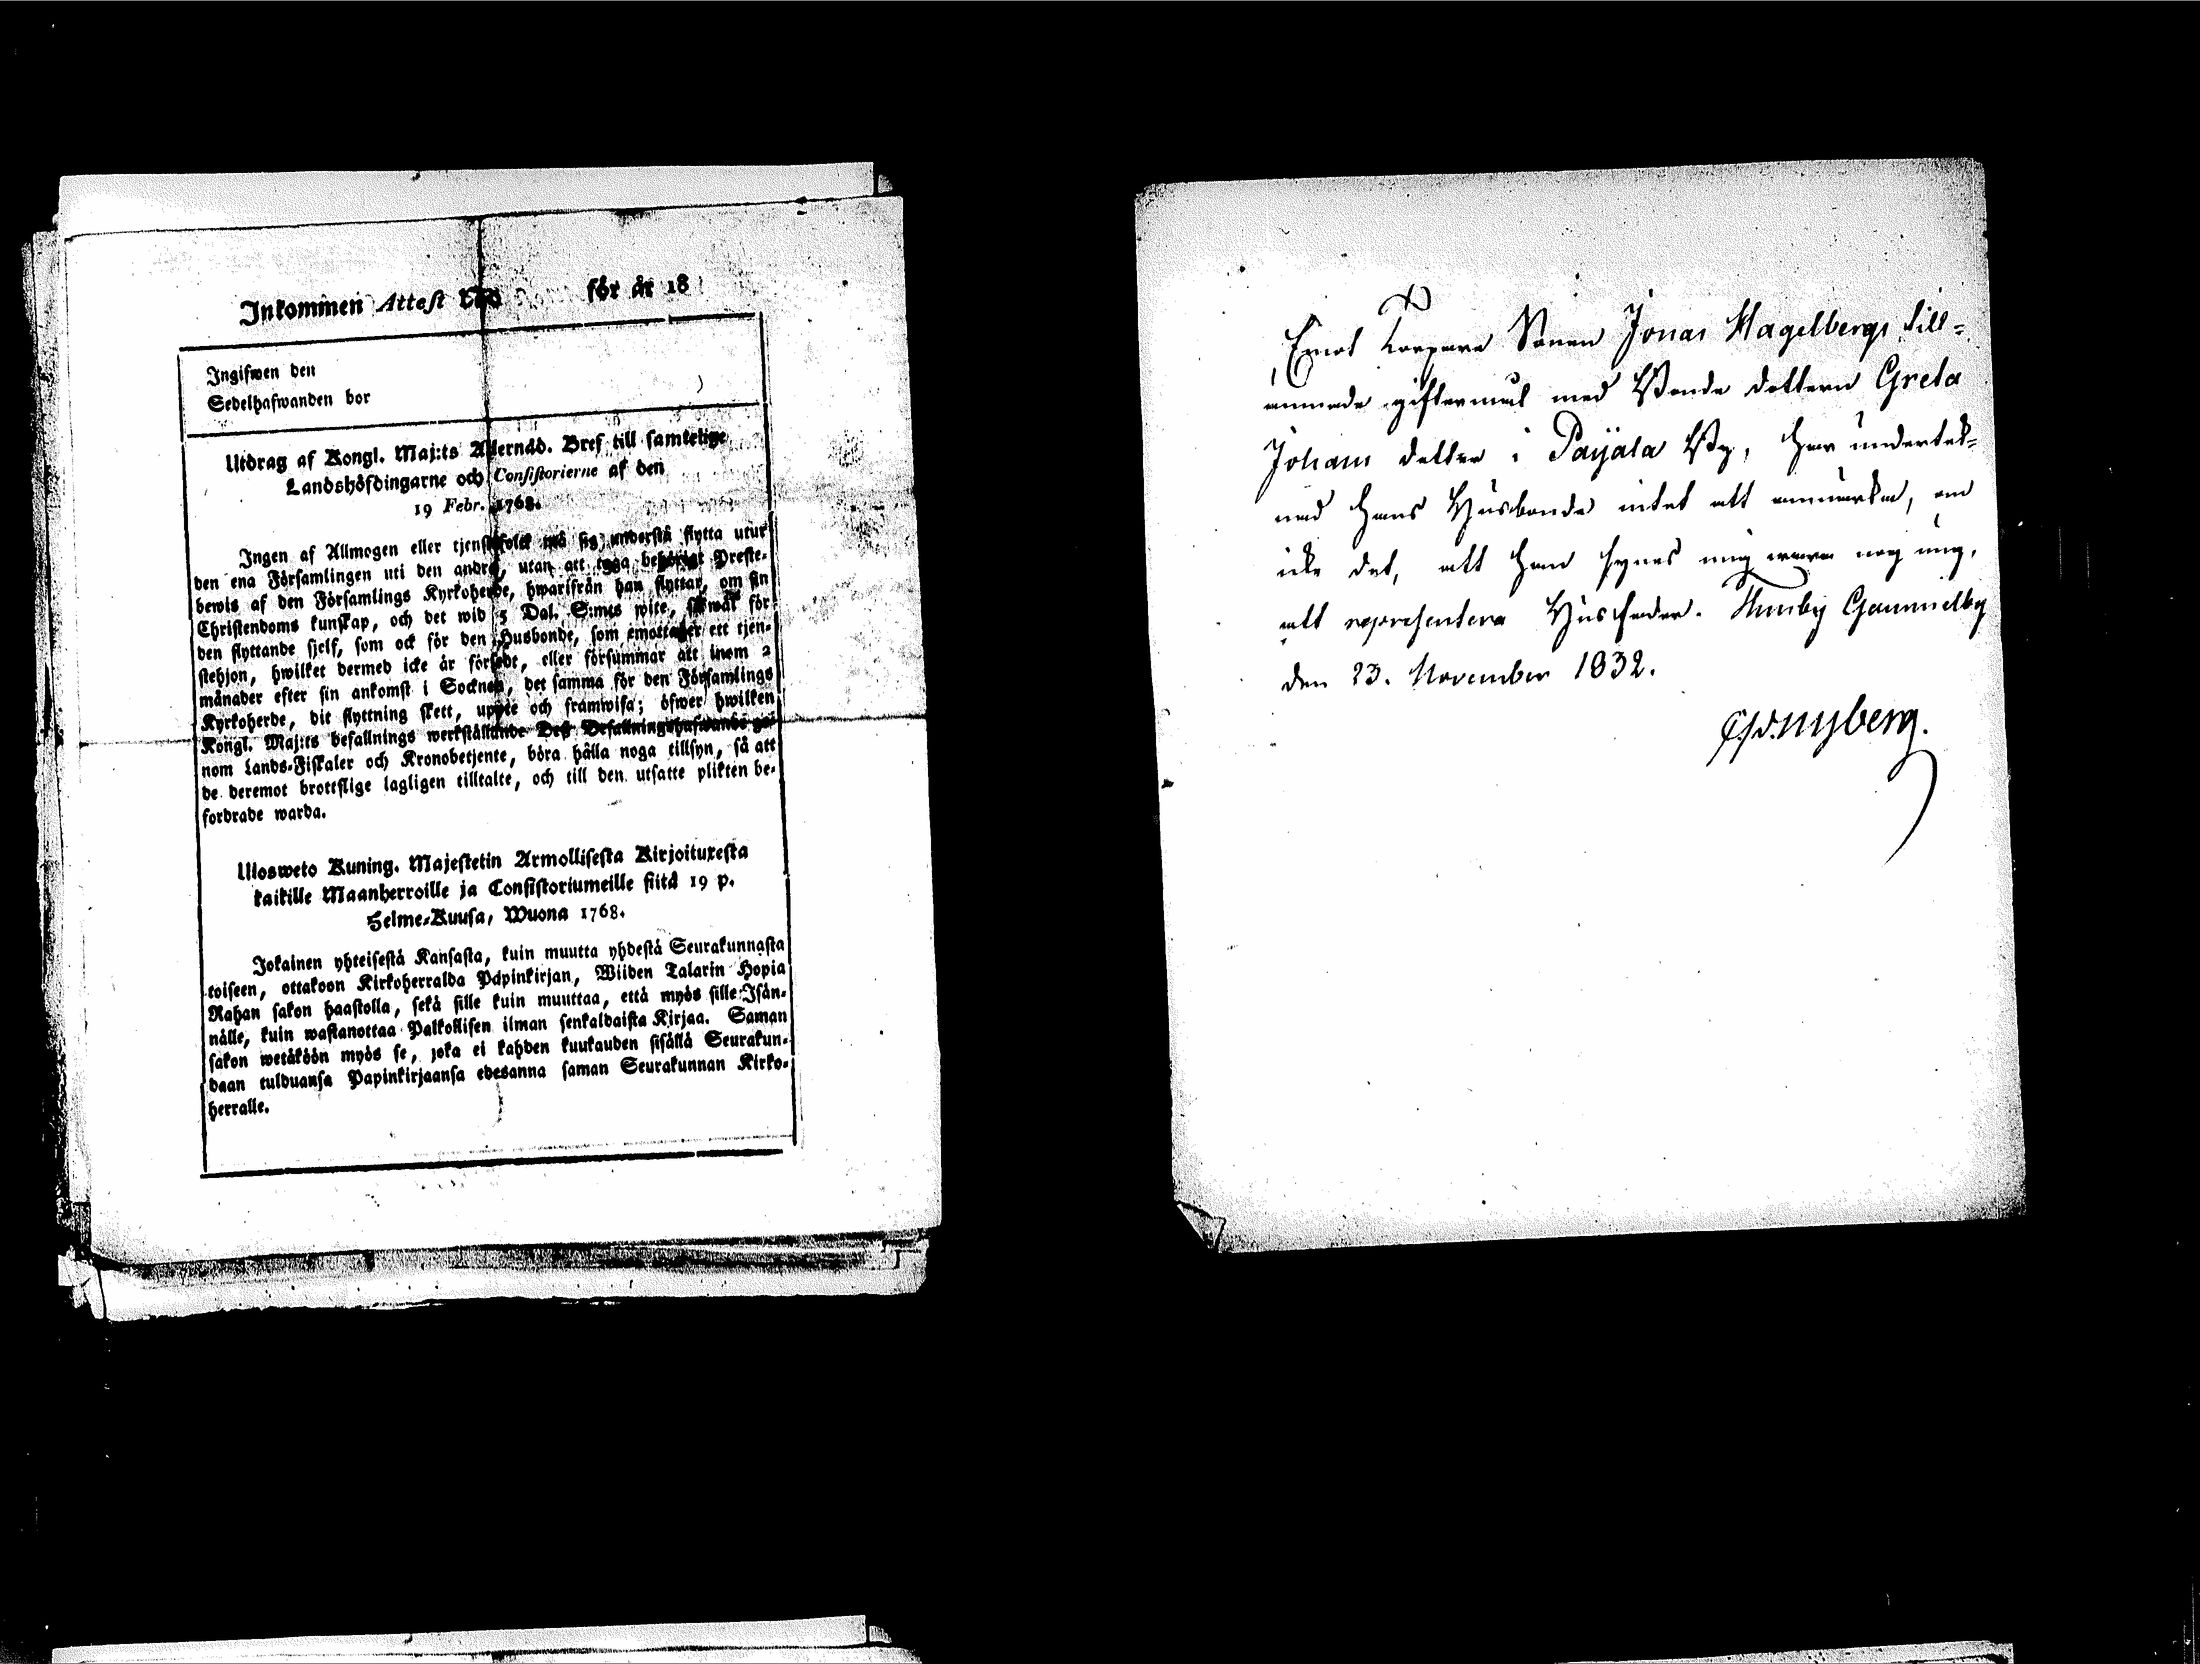 Inkommen Attest N:o för år 18
Ingifwen den
Sedelhafwanden bor
Utdrag af Kongl. Maj:ts Allernåd. Bref till samtelige
Landshöfdingarne och Consistorierne af den
19 Febr. 1768.
Ingen af Allmogen eller tjenstefolck må sig understå flytta utur
den ena Församlingen uti den andra, utan att äga behörigt Preste-
bewis af den Församlings Kyrkoherde, hwarifrån han flyttar, om sin
Christendoms kunskap, och det wid 5 Dal. S:mts wite, såwäl för
den flyttande sjelf, som ock för den Husbonde, som emottager ett tjen-
stehjon, hwilket dermed icke är försedt, eller försummar att inom 2
månader efter sin ankomst i Socknen, det samma för den Församlings
Kyrkoherde, dit flyttning skett, uppte och framwisa; öfwer hwilken
Kongl. Maj:ts befallnings werkställande Dess Befallningshafwande ge-
nom Lands-Fiskaler och Kronobetjente, böra hålla noga tillsyn, så att
de deremot brottslige lagligen tilltalte, och till den utsatte plikten be-
fordrade warda.
Ulosweto Kuning. Majestetin Armollisesta Kirjoituxesta
kaikille Maanherroille ja Consistoriumeille siitä 19 p.
Helme-Kuusa, Wuona 1768.
Jokainen yhteisestä Kansasta, kuin muutta yhdestä Seurakunnasta
toiseen, ottakoon Kirkoherralda Papinkirjan, Wiiden Talarin Hopia
Rahan sakon haastolla, sekä sille kuin muuttaa, että myös sille Isän-
nälle, kuin wastanottaa Palkollisen ilman senkaldaista Kirjaa. Saman
sakon wetäköön myös se, joka ei kahden kuukauden sisällä Seurakun-
daan tulduansa Papinkirjaansa edesanna saman Seurakunnan Kirko-
herralle.
Emot Torpare Sonen Jonas Hagelbergs till-
ernade giftermål med Bonde dottern Greta
Johans dotter i Payala By, har underteck-
nad hans Husbonde intet att anmärka, om
icke det, att han synes mig vara nog ung,
att representera Husfader. Thusby Gammelby
den 23. November 1832.
Nyberg.